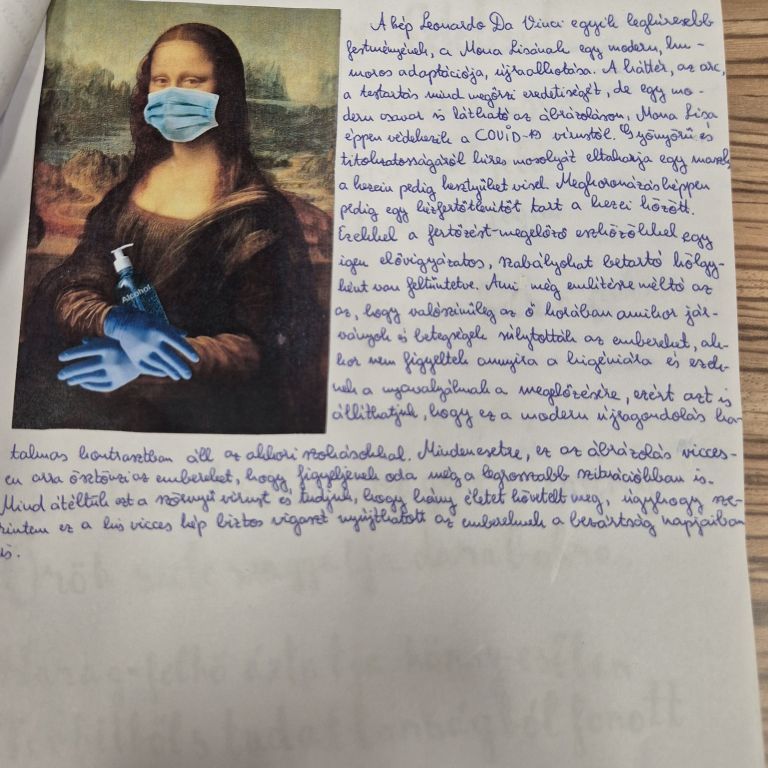 A kép Leonardo Da Vinci egyik leghíresebb
festményének, a Mona Lisának egy modern, hu-
moros adaptációja, újraalkotása. A háttér, az arc,
a testartás mind megőrzi eredetiségét, de egy mo-
dern csavar is látható az ábrázoláson, Mona Lisa
éppen védekezik a COVID-19 vírustól. Gyönyörű és
titokzatosságáról híres mosolyát eltakarja egy maszk,
a kezein pedig kesztyűket visel. Megkoronázásképpen
pedig egy kézfertőtlenítőt tart a kezei között.
Ezekkel a fertőzést-megelőző eszközökkel egy
igen elővigyázatos, szabályokat betartó hölgy-
ként van feltüntetve. Ami még említésre méltó az
az, hogy valószínűleg az ő korában amikor jár-
ványok és betegségek sújtották az embereket, ak-
kor nem figyeltek annyira a higéniára és ezek-
nek a nyavalyáknak a megelőzésére, ezért azt is
állíthatjuk, hogy ez a modern újragondolás ha-
talmas kontrasztban áll az akkori szokásokkal. Mindenesetre, ez az ábrázolás vicces-
en arra ösztönzi az embereket, hogy figyeljenek oda még a legrosszabb szituációkban is.
Mind átéltük ezt a szörnyű vírust és tudjuk, hogy hány életet követelt meg, úgyhogy sze-
rintem ez a kis vicces kép biztos vigaszt nyújthatott az embereknek a bezártság napjaiban
is.
Alcohol